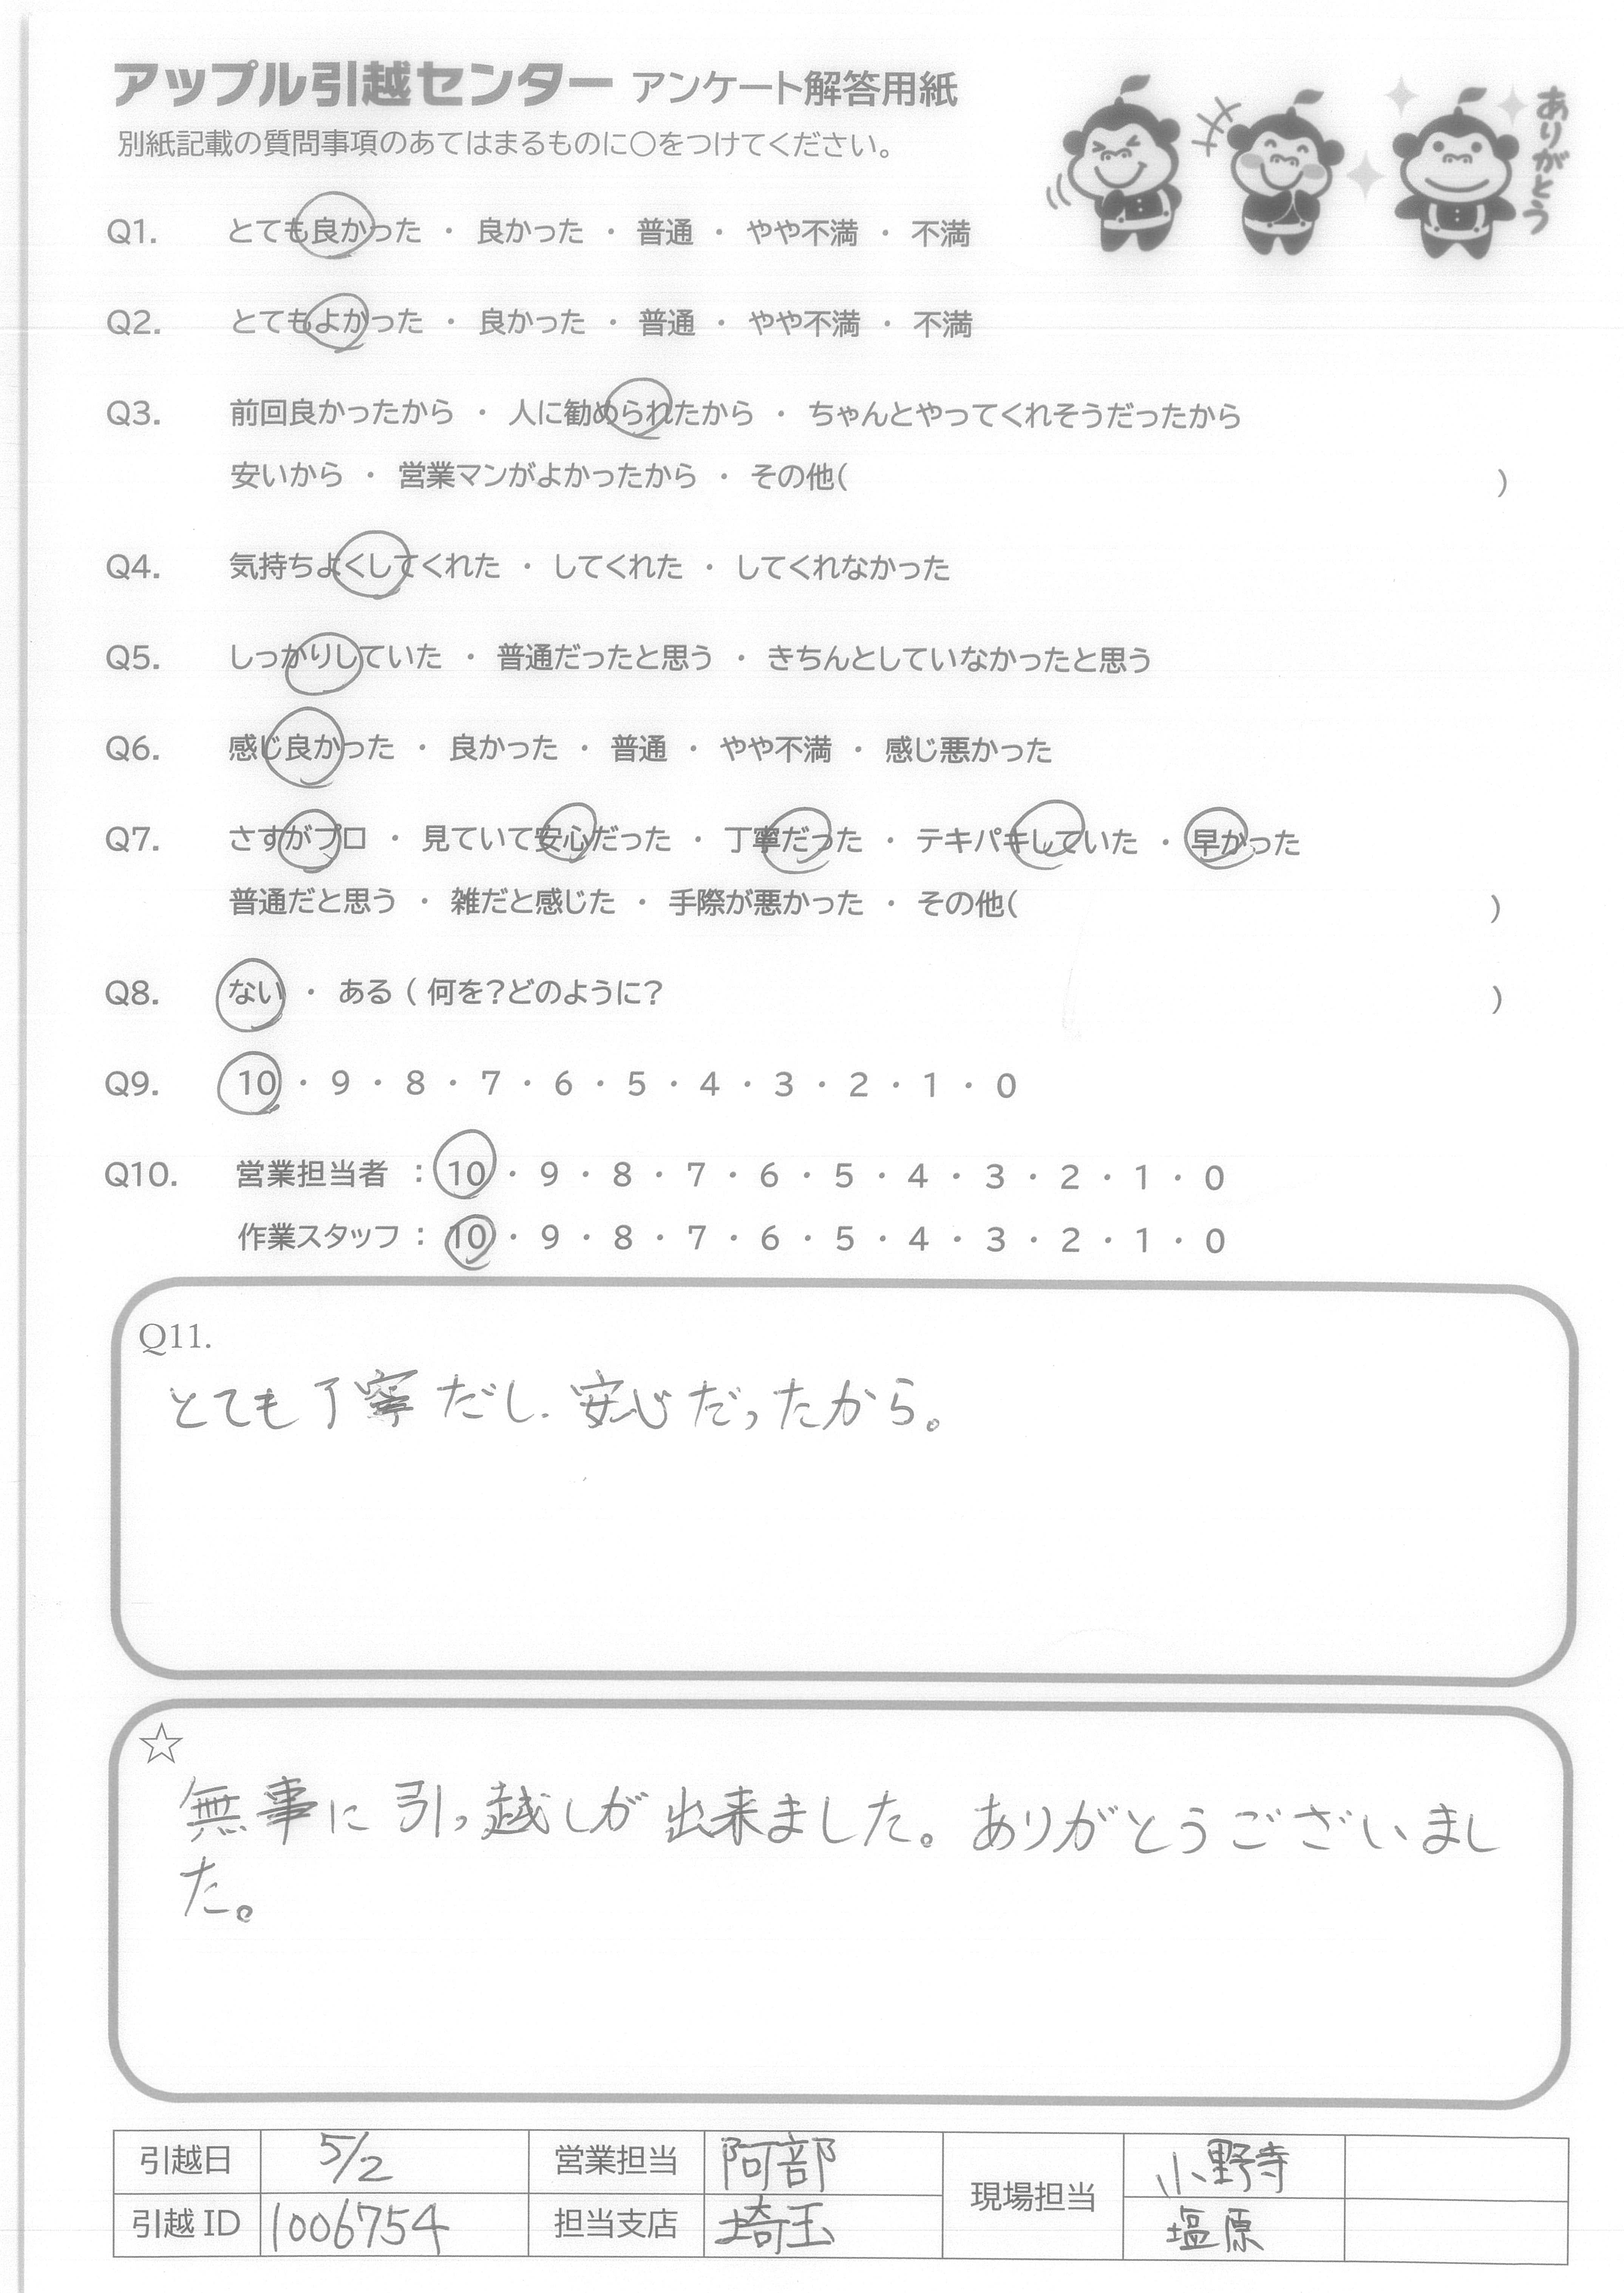 アップル引越センター アンケート解答用紙
ありがとう
別紙記載の質問事項のあてはまるものに〇をつけてください。
Q1. とても良かった ・ 良かった ・ 普通 ・ やや不満 ・ 不満
Q2. とてもよかった ・ 良かった ・ 普通 ・ やや不満 ・ 不満
Q3. 前回良かったから ・ 人に勧められたから ・ ちゃんとやってくれそうだったから
安いから ・ 営業マンがよかったから ・ その他( )
Q4. 気持ちよくしてくれた ・ してくれた ・ してくれなかった
Q5. しっかりしていた ・ 普通だったと思う ・ きちんとしていなかったと思う
Q6. 感じ良かった ・ 良かった ・ 普通 ・ やや不満 ・ 感じ悪かった
Q7. さすがプロ ・ 見ていて安心だった ・ 丁寧だった ・ テキパキしていた ・ 早かった
普通だと思う ・ 雑だと感じた ・ 手際が悪かった ・ その他( )
Q8. ない ・ ある ( 何を?どのように? )
Q9. 10 ・ 9 ・ 8 ・ 7 ・ 6 ・ 5 ・ 4 ・ 3 ・ 2 ・ 1 ・ 0
Q10. 営業担当者 : 10 ・ 9 ・ 8 ・ 7 ・ 6 ・ 5 ・ 4 ・ 3 ・ 2 ・ 1 ・ 0
作業スタッフ : 10 ・ 9 ・ 8 ・ 7 ・ 6 ・ 5 ・ 4 ・ 3 ・ 2 ・ 1 ・ 0
Q11.
とても丁寧だし、安心だったから。
☆
無事に引っ越しが出来ました。ありがとうございまし
た。
引越日 5/2 営業担当 阿部 現場担当 小野寺
引越ID 1006754 担当支店 埼玉 塩原